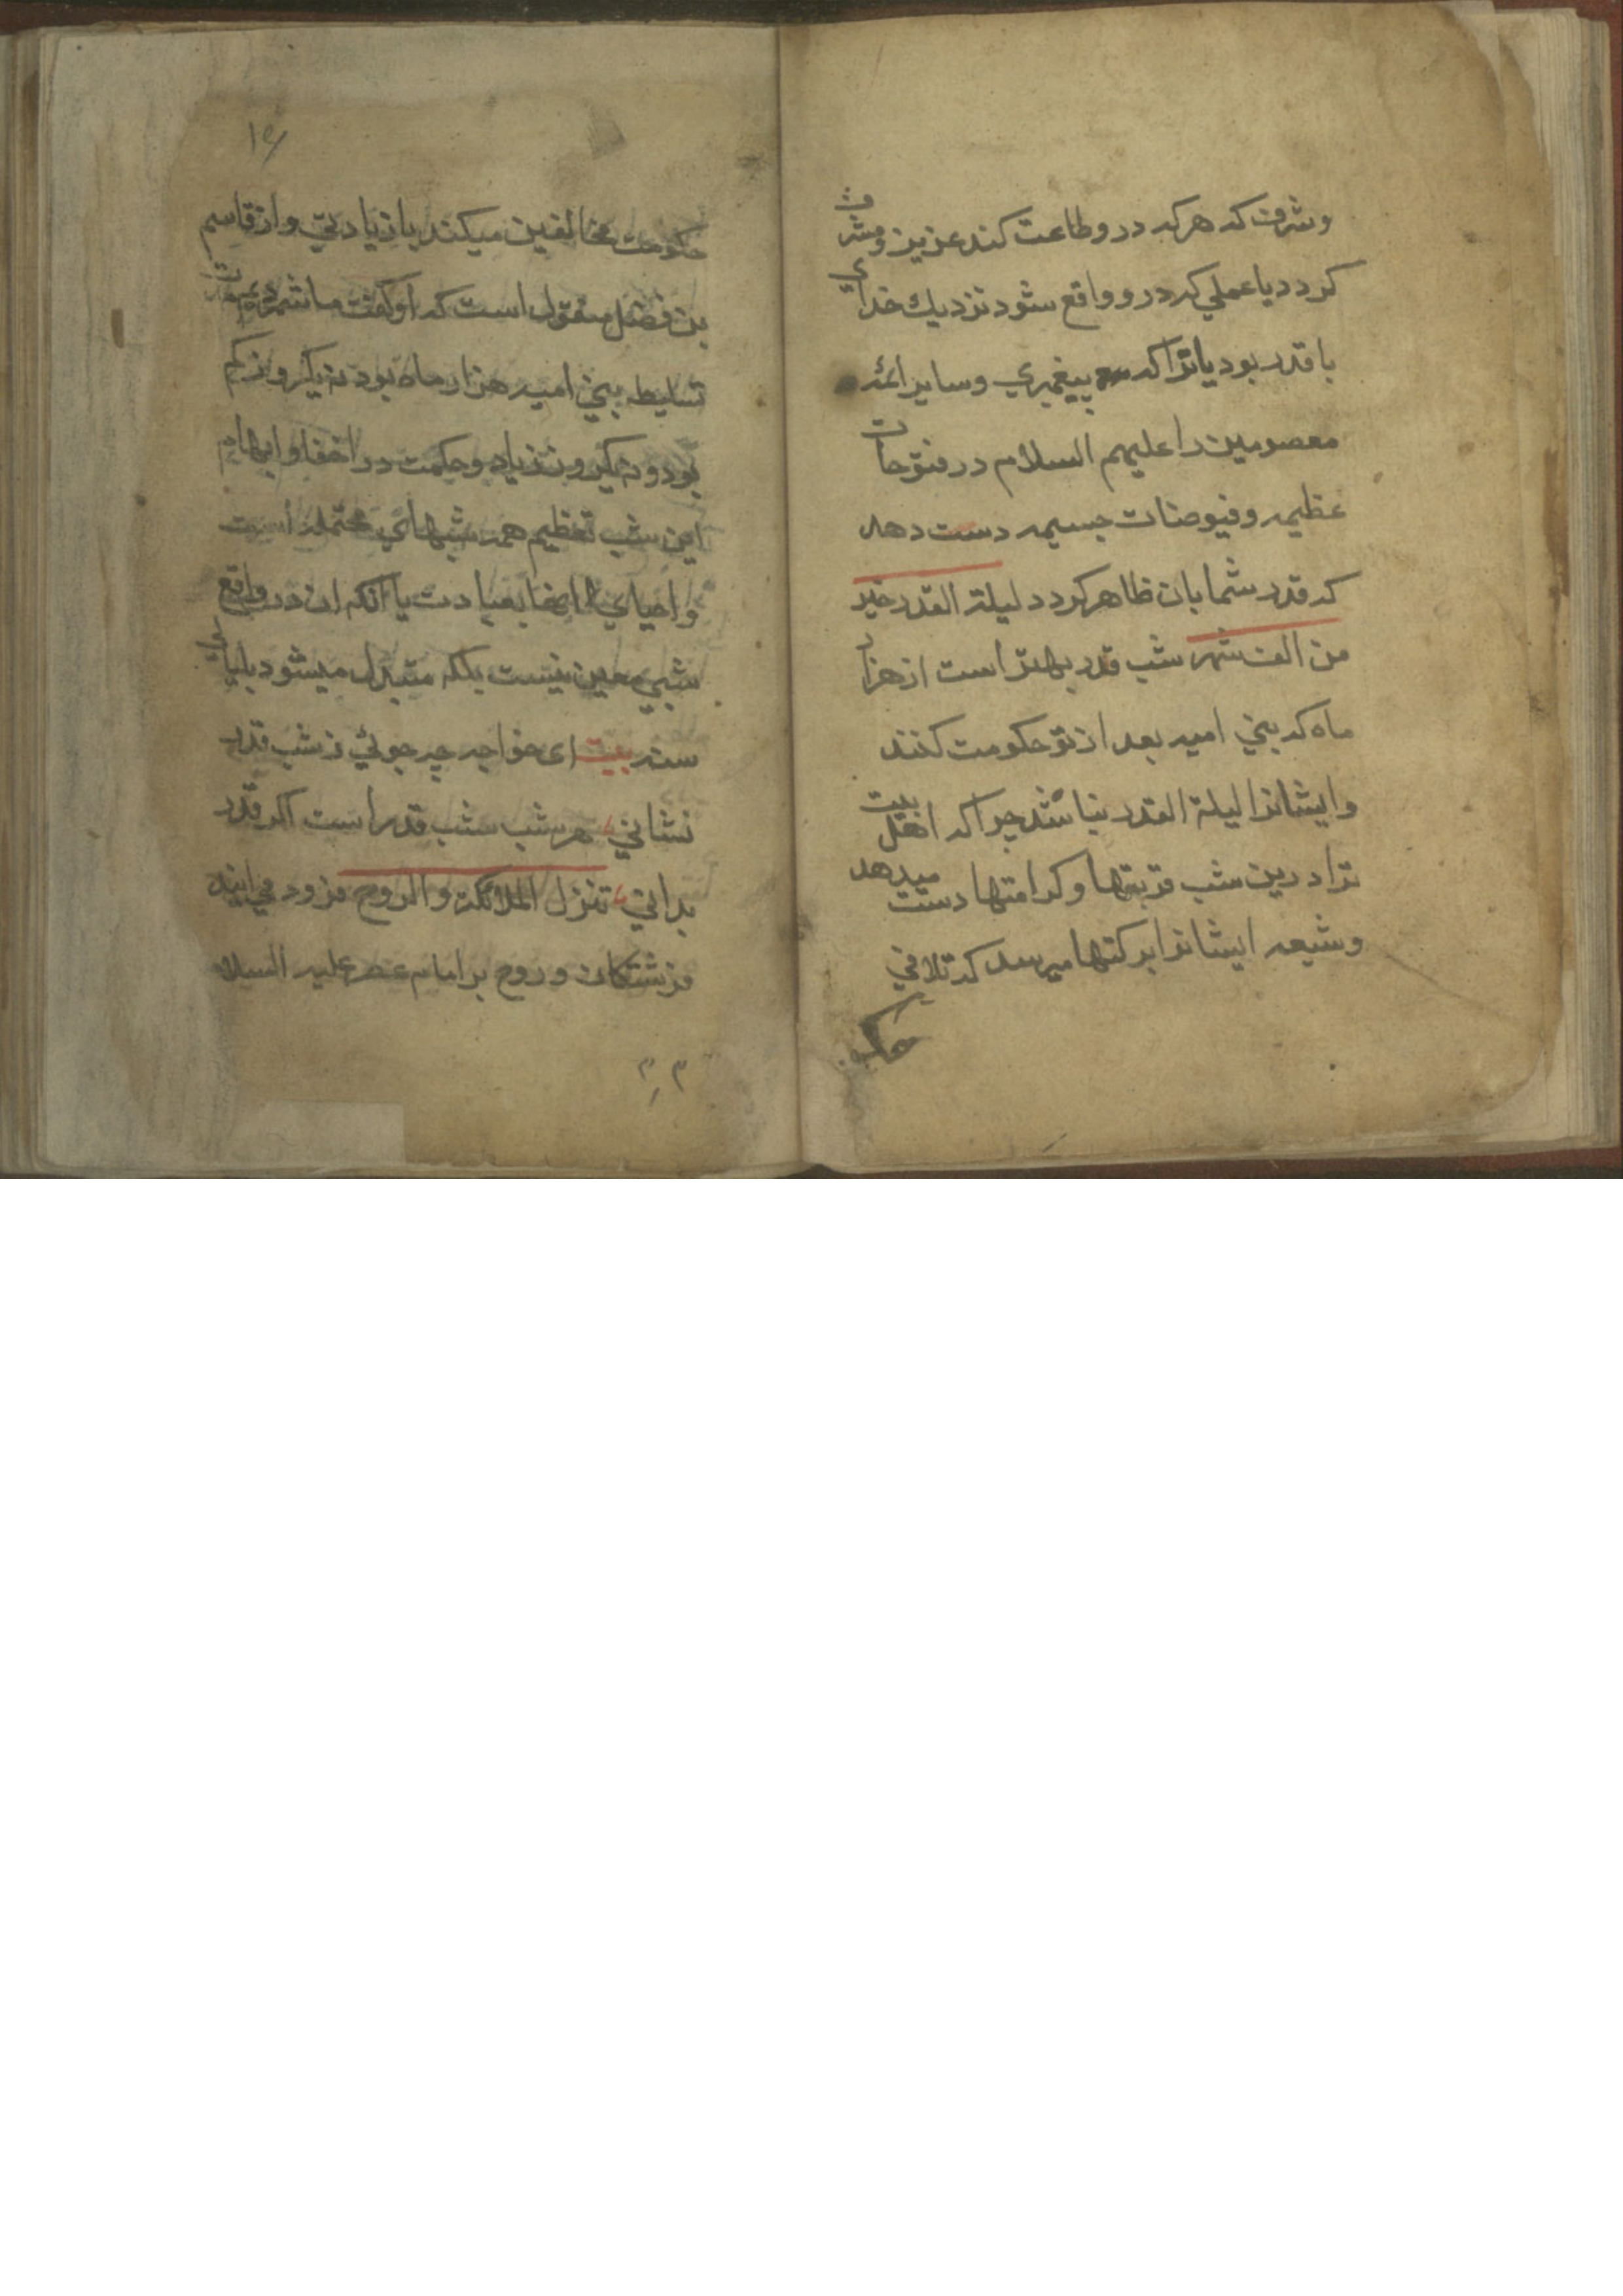 وشرف که هر که در و طاعت کند عزیز و مشرف
کردد یا عملی که در و واقع شود نزدیك خدای
با قدر بود یا ترا که پیغمبری و سایر ائمه
معصومین را علیهم السلام در فتوحات
عظیمه و فیوضات جسیمه دست دهد
که قدر شما بان ظاهر کردد لیلة القدر خیر
من الف شهر شب قدر بهتر است از هزار
ماه که بنی امیه بعد از تو حکومت کنند
و ایشانرا لیلة القدر نباشد چرا که اهل بیت
ترا درین شب قربتها و کرامتها دست میدهد
و شیعه ایشانرا برکتها میرسد که تلافی
حکومت
حکومت مخالفین میکند یا زیادتی و از قاسم
بن فضل منقول است که او کفت ما شمردیم مدت
تسلیط بنی امیه هزار ماه بود نه یکروز کم
بود و نه یکروز زیاد و حکمت در اخفا و ابهام
این شب تعظیم همه شبهای محتمله است
و احیای انها بعبادت یا انکه ان در واقع
شبی معین نیست بلکه متبدل میشود بلیالی
سنه بیت ای خواجه چه جوئی ز شب قدر
نشانی هر شب شب قدر است اکر قدر
بدانی تنزل الملائکة والروح فرود می ایند
فرشتکان و روح بر امام عصر علیه السلام